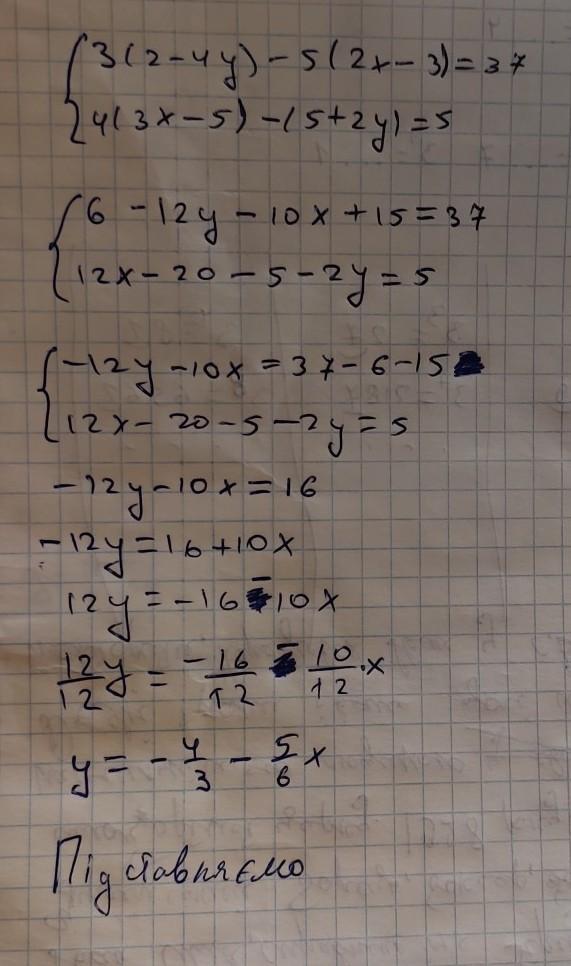 3(2-4y)-5(2x-3)=37
4(3x-5)-(5+2y)=5
6-12y-10x+15=37
12x-20-5-2y=5
-12y-10x=37-6-15
12x-20-5-2y=5
-12y-10x=16
-12y=16+10x
12y=-16-10x
12/12 y = -16/12 - 10/12·x
y=-4/3-5/6x
Підставляємо